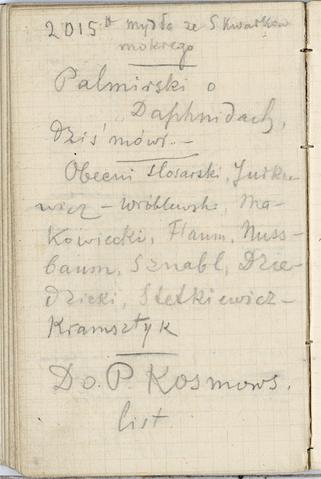 2015 tt mydła ze Skwarków
mokrego
Palmirski o
Daphnidach,
dziś mówi. –
Obecni Ślosarski, Jurke-
wicz – Wróblewski, Ma-
kowiecki, Flaum, Nuss-
baum, Sznabl, Dzie-
dzicki, Stetkiewicz –
Kramsztyk
Do P. Kosmows.
list.